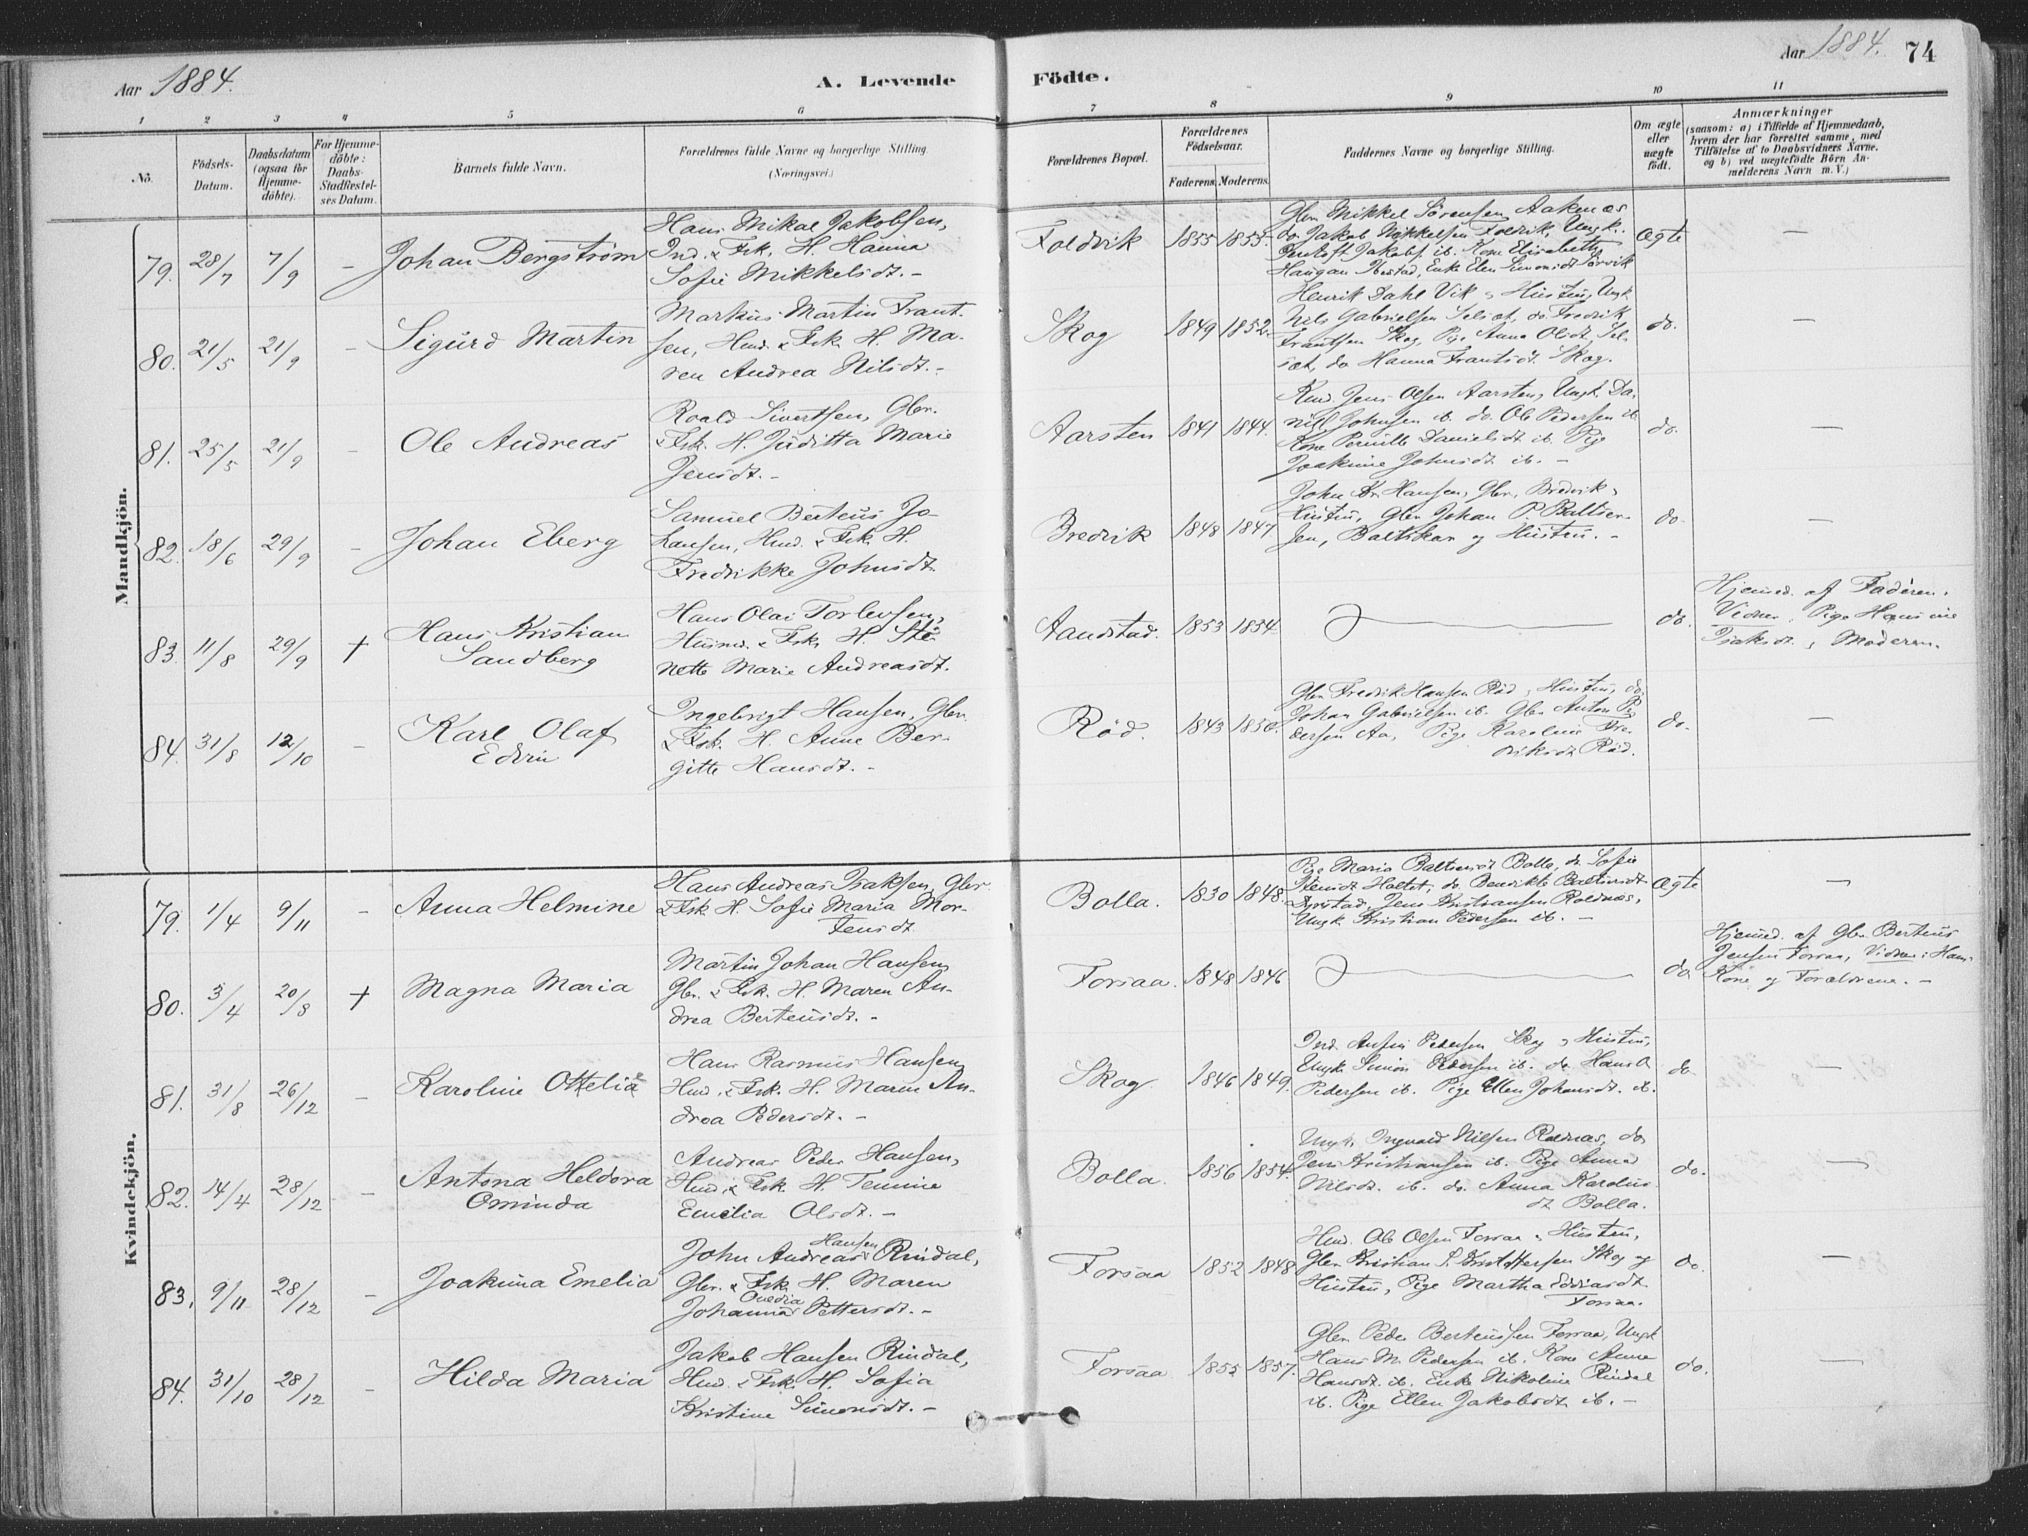 Aar 1884.
A. Levende
Födte.
Aar 1884.
74
1 2 3 4 5 6 7 8 9 10 11
No.
Födsels-Datum.
Daabsdatum (ogsaa for Hjemme-döbte).
For Hjemme-döbte: Daabs-Stadfæstel-ses Datum.
Barnets fulde Navn.
Forældrenes fulde Navne og borgerlige Stilling. (Næringsvei.)
Forældrenes Bopæl.
Forældrenes Födselsaar.
Faderens. Moderens.
Faddernes Navne og borgerlige Stilling.
Om ægte eller uægte födt.
Anmærkninger
(saasom: a) i Tilfælde af Hjemmedaab,
hvem der har forrettet samme, med
Tilföielse af to Daabsvidners Navne,
og b) ved uægtefödte Börn An-
melderens Navn m. V.)
Mandkjön.
79. 28/7 7/9 – Johan Bergstrøm
Hans Mikal Jakobsen,
Ind. & Fsk. H. Hanna
Sofie Mikkelsdt. –
Foldvik 1855 1855.
Gbr. Mikkel Sørensen Aaknæs
do Jakob Mikkelsen Foldvik, Ungk.
Jakobs. ib. Kone Elisabeth
Haugan Ibestad, Enke Elen Simonsdt
Ægte –
80. 21/5 21/9 – Sigurd Martin
Markus Martin Frant-
sen, Hmd. & Fsk. H. Ma-
ren Andrea Nilsdt. –
Skog 1849 1852.
Henrik Dahl Vik & Hustru, Ungk
Nils Gabrielsen Selsæt, do Fredrik
Frantsen Skog, Pige Anna Olsdt. Sel-
sæt, do Hanna Frantsdt. Skog.
do. –
81. 25/5 21/9 – Ole Andreas
Roald Sivertsen, Gbr.
& Fsk. H. Juditta Marie
Jensdt. –
Aarsten 1841 1844.
Kmd. Jens Olsen Aarsten, Ungk. Da-
niel Johnsen ib. do. Ole Pedersen ib
Kone Pernille Danielsdt. ib. Pige
Joakime Johnsdt. ib. –
do. –
82. 18/6 29/9 – Johan Eberg
Samuel Berteus Jo-
hansen, Hmd. & Fsk. H.
Fredrikke Johnsdt.
Bredvik 1848 1847
John Kr. Hansen, Gbr. Bredvik &
Hustru, Gbr Johan P. Baltser-
sen, Baltskar og Hustru. –
do. –
83. 11/8 29/9 + Hans Kristian
Sandberg
Hans Olai Torlevsen,
Husmd. & Fsk. H. Ste-
nette Marie Andreasdt.
Aandstad. 1853 1854.
do.
Hjemmed. af Faderen.
Vidner, Pige Hansine
Isaksdt. & Moderen.
84. 31/8 12/10 – Karl Olaf
Edvin
Ingebrigt Hansen, Gbr.
& Fsk. H. Anne Ber-
gitte Hansdt. –
Rød. 1843 1850.
Gbr Fredrik Hansen Rød & Hustru, do
Johan Gabrielsen ib. Gbr Anton Pe-
dersen Aa, Pige Karoline Fre-
driksdt. Rød.
do. –
Kvindekjön.
79. 1/4 9/11 – Anna Helmine
Hans Andreas Isaksen, Gbr.
& Fsk H. Sofie Maria Mor-
tensdt.
Bolla. 1830 1848.
Pige Maria Baltsersdt Bolla, do. Sofie
do. Benedikte Baltsersdt
Jens Kristiansen Roldnæs,
Ungk. Kristian Pedersen ib. –
Ægte –
80. 3/4 20/8 + Magna Maria
Martin Johan Hansen
Gbr. & Fsk. H. Maren An-
drea Berteusdt. –
Forsaa. 1848 1846
do
Hjemmed. af Gbr Berteus
Jensen Forsaa, Vidner: Hans
Kone og Forældrene. –
81. 31/8 26/12 – Karoline Ottelia
Hans Rasmus Hansen
Hmd. & Fsk. H. Maren An-
drea Pedersdt. –
Skog 1846 1849.
Ind. Pedersen Skog & Hustru,
Ungk. Simon Pedersen ib. do. Hans A
Pedersen ib. Pige Ellen Johansdt. ib.
do. –
82. 14/4 28/12 – Antona Heldora
Ominda
Andreas Peder Hansen,
Hmd. & Fsk. H. Temine
Emilia Olsdt. –
Bolla. 1856 1854.
Ungk. Ingvald Nilsen Roldnæs, do
Jens Kristiansen ib. Pige Anna
Nilsdt. ib. do. Anna Karolius-
dt Bolla.
do. –
83. 9/11 28/12 – Joakima Emelia
John Andreas Hansen Rindal,
Gbr. & Fsk. H. Maren
Johanna Ovedia Pettersdt. –
Forsaa 1852 1848
Hmd. Ole Olsen Forsaa & Hustru,
Gbr Kristian S. Kristoffersen Skog og
Hustru, Pige Martha Edvardsdt.
Forsaa.
do. –
84. 31/10 28/12 – Hilda Maria
Jakob Hansen Rindal,
Hmd. & Fsk. H. Sofia
Kristine Simonsdt. –
Forsaa 1855 1857.
Gbr Peder Berteussen Forsaa, Ungk
Hans M. Pedersen ib. Kone Anne
Hansdt. ib. Enke Nikoline Rindal
ib. Pige Ellen Jakobsdt. ib. –
do. –